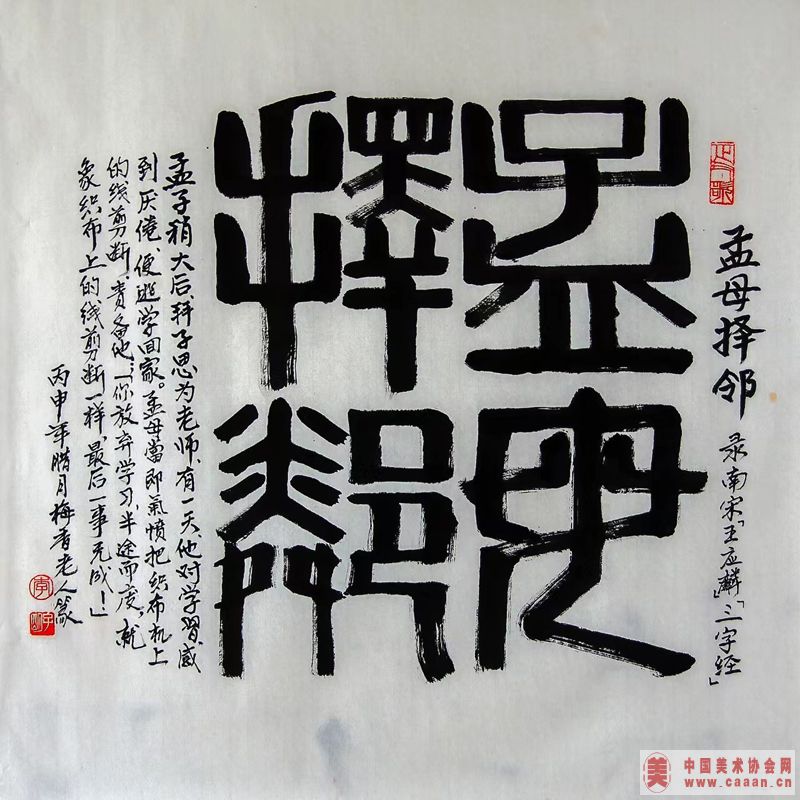 孟母择邻 录南宋「王应麟」「三字经」
孟母
擇鄰
孟子稍大后,拜子思为老师,有一天,他对学習感
到厌倦,便逃学回家。孟母當即氣愤把织布机上
的线剪断,责备他:「你放弃学习,半途而废,就
象织布上的线剪断一样,最后一事无成!」
丙申年腊月梅香老人篆
美 中国美术协会网
www.caaan.cn